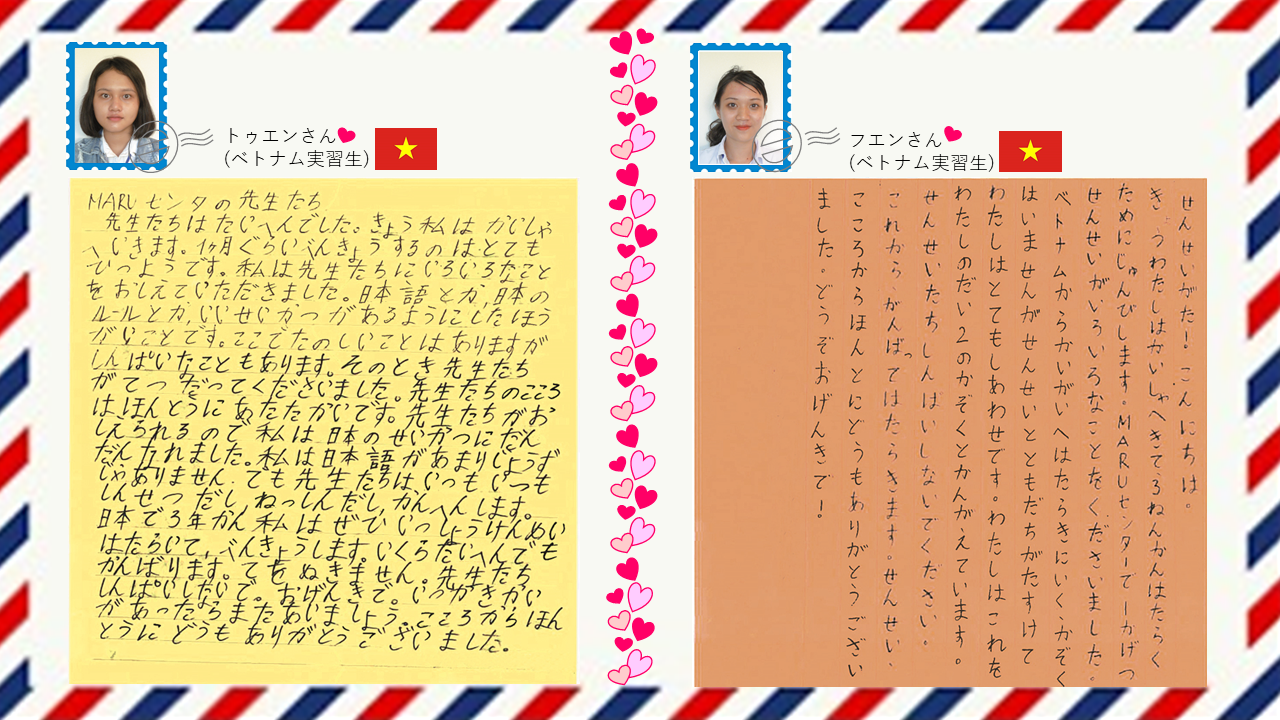 トゥエンさん
(ベトナム実習生)
MARU センタの先生たち
先生たちはたいへんでした。きょう私は かいしゃ
へ いきます。1ヶ月ぐらいべんきょうするの はとても
ひつようです。私は先生たちにいろいろなこと
をおしえていただきました。日本語とか,日本の
ルールとか,いいせいかつ があるようにしたほう
がいいことです。ここでたのしいことはありますが
しんぱいたこともあります。そのとき先生たち
がてつだってくださいました。先生たちのこころ
は ほんとうに あたたかいです。先生たちがお
しえられるので 私は 日本の せいかつにだん
だん れました。私は日本語があまりじょうず
じゃありません。でも先生たちはいつもいつも
しんせつだし,ねっしんだし,かんへんします。
日本で3年かん 私は ぜひいっしょうけんめい
はたらいて,べんきょうします。いくらたいへんでも
がんばります。てをぬきません。先生たち
しんぱいしないで。おげんきで。いつかきかい
があったらまたあいましょう。こころからほん
とうに どうも ありがとう ございました。
フエンさん
(ベトナム実習生)
せんせいがた！こんにちは。
きょうわたしはかいしゃへきて3ねんかんはたらく
ためにじゅんびします。MARUセンターで一かげつ
せんせいがいろいろなことをくださいました。
ベトナムからかいがいへはたらきにいく、かぞく
はいませんがせんせいとともだちがたすけて
わたしはとてもしあわせです。わたしはこれを
わたしのだい2のかぞくとかんがえています。
せんせいたちしんぱいしないでください。
これから、がんばってはたらきます。せんせい、
こころからほんとにどうもありがとうござい
ました。どうぞおげんきで！